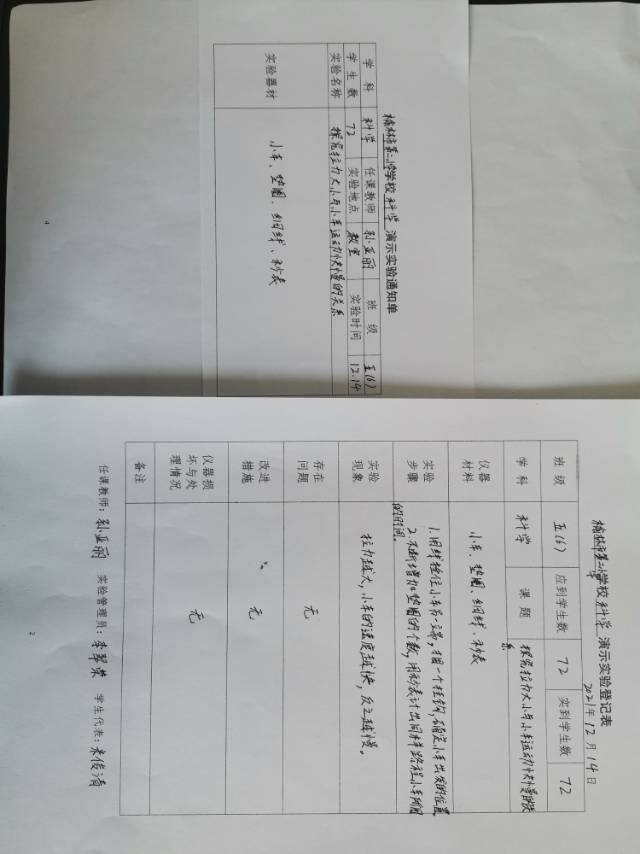 榆林市第二小学学校科学演示实验通知单
学科 科学 任课教师 孙亚丽 班级 五(6)
学生数 72 实验地点 教室 实验时间 12.14
实验名称 探究拉力大小与小车运动快慢的关系
实验器材 小车、垫圈、细线、秒表
4
榆林市第二小学学校科学演示实验登记表
2021年12月14日
班级 五(6) 应到学生数 72 实到学生数 72
学科 科学 课题 探究拉力大小与小车运动快慢的关系
仪器材料 小车、垫圈、细线、秒表
实验步骤 1.用线拴住小车的一端,挂个挂钩,确定小车出发的位置
2.不断增加垫圈的个数,用秒表计出同样路程小车所用
的时间。
实验现象 拉力越大,小车的速度越快,反之越慢。
存在问题 无
改进措施 无
仪器损坏与处理情况 无
备注
任课教师:孙亚丽 实验管理员:李翠荣 学生代表:
2